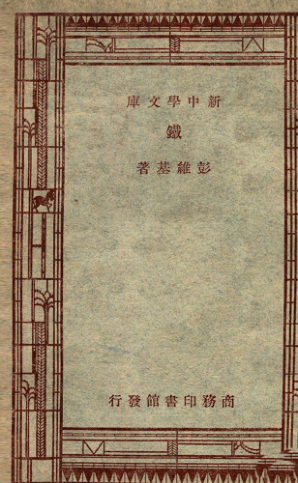 新中學文庫
鐵
彭維基著
商務印書館發行